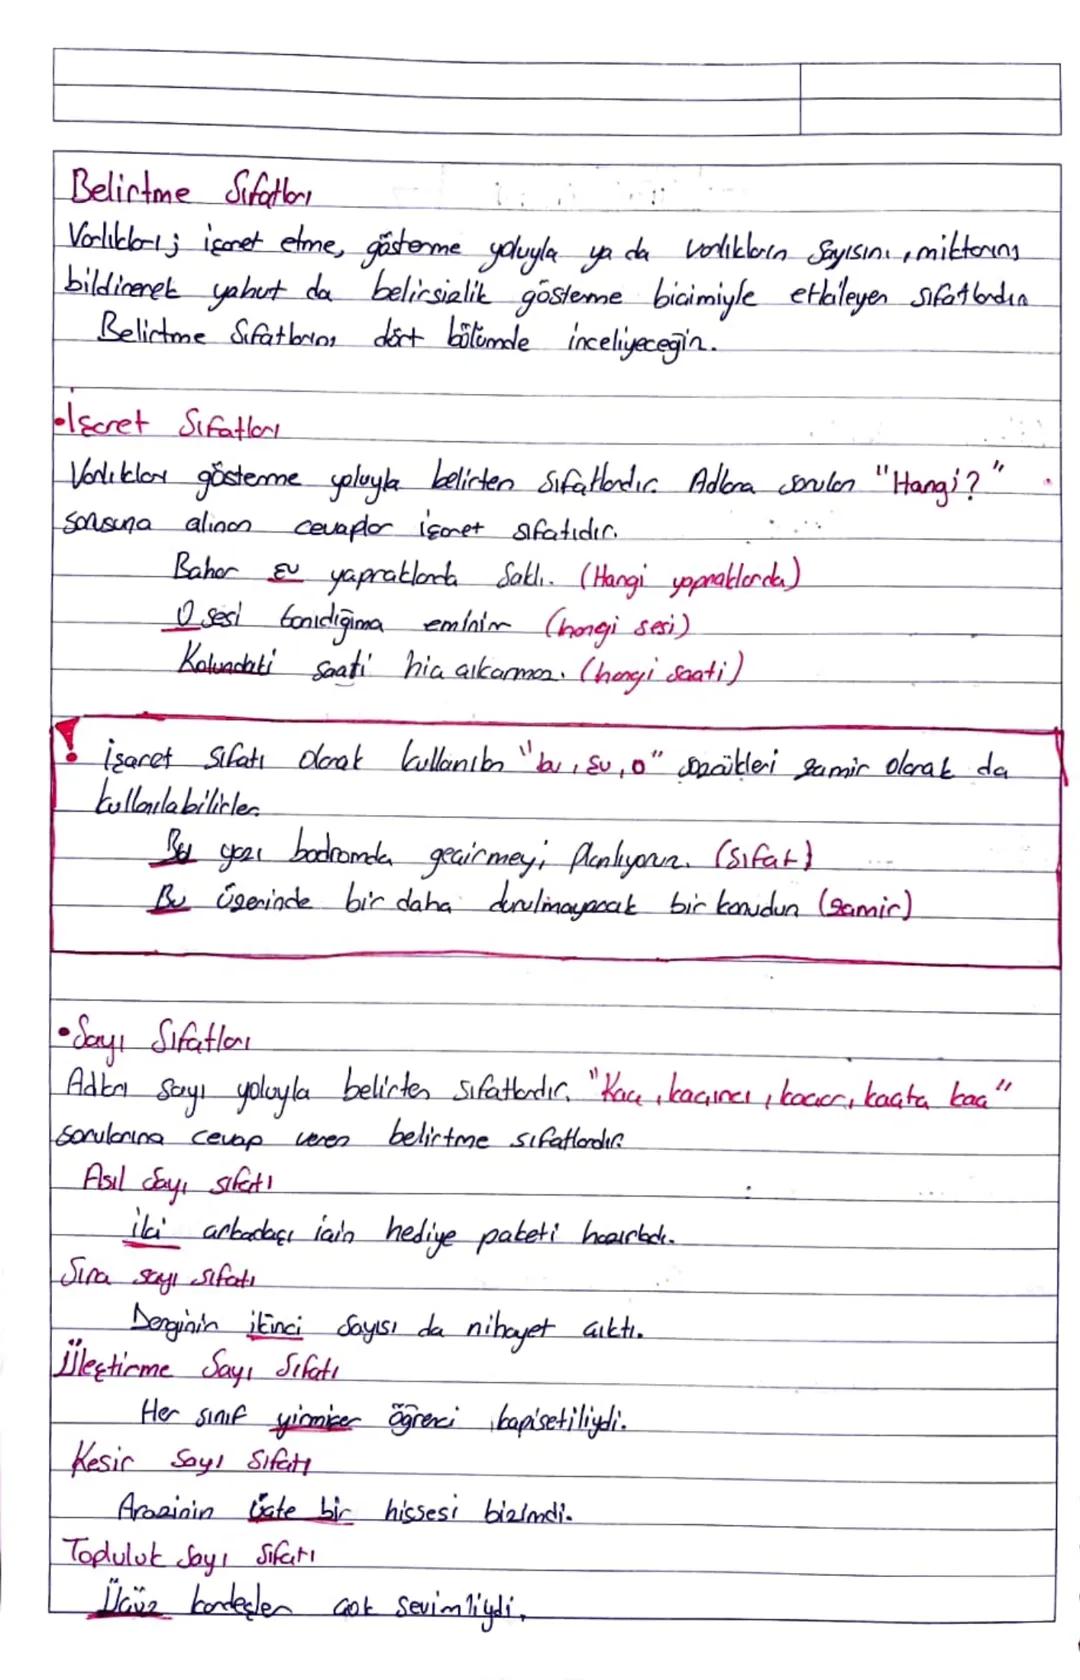 Belirtme Sıfatları
Varlıkları; işaret etme, gösterme yoluyla ya da varlıkların sayısını, miktarını
bildirerek yahut da belirsizlik gösterme biçimiyle etkileyen sıfatlardır
Belirtme Sıfatlarını dört bölümde inceliyeceğiz.
•İşaret Sıfatları
Varlıkları gösterme yoluyla belirten sıfatlardır. Adlara sorulan "Hangi?"
sorusuna alınan cevaplar işaret sıfatıdır.
Bahar şu yapraklarda saklı. (Hangi yapraklarda)
O sesi tanıdığıma eminim (hangi sesi)
Kolundaki saati hiç çıkarmaz. (hangi saati)
! İşaret sıfatı olarak kullanılan "bu, şu, o" sözcükleri zamir olarak da
kullanılabilirler
Bu yazı bodrumda geçirmeyi planlıyoruz. (Sıfat)
Bu üzerinde bir daha durulmayacak bir konudur (zamir)
•Sayı Sıfatları
Adları sayı yoluyla belirten sıfatlardır. "Kaç, kaçıncı, kaçar, kaçta kaç"
sorularına cevap veren belirtme sıfatlarıdır.
Asıl sayı sıfatı
iki arkadaşı için hediye paketi hazırladı.
Sıra sayı sıfatı
Derginin ikinci sayısı da nihayet çıktı.
Üleştirme Sayı Sıfatı
Her sınıf yirmişer öğrenci kapisetiliydi.
Kesir Sayı Sıfatı
Arazinin üçte bir hissesi bizimdi.
Topluluk Sayı Sıfatı
Üçüz kardeşler çok sevimliydi.